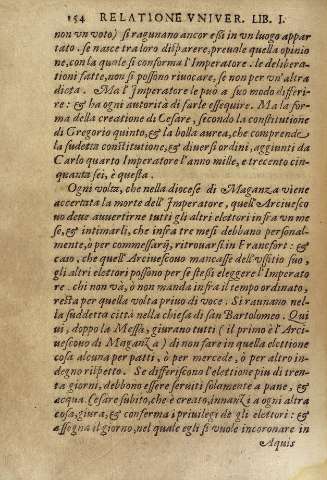 154 RELATIONE VNIVER. LIB. I.
non vn voto) si ragunano ancor essi in vn luogo appar
tato. se nasce tra loro disparere, preuale quella opinio
ne, con la quale si conforma l'Imperatore. le delibera-
tioni fatte, non si possono riuocare, se non per vn'altra
dieta. Ma l'Imperatore le può a suo modo differi
re: & ha ogni autorità di farle esseguire. Ma la for-
ma della creatione di Cesare, secondo la constitutione
di Gregorio quinto, & la bolla aurea, che comprende
la sudetta constitutione, & diuersi ordini, aggiunti da
Carlo quarto Imperatore l'anno mille, e trecento cin-
quanta sei, è questa.
Ogni volta, che nella diocese di Maganza viene
accertata la morte dell'Imperatore, quell'Arciuesco
uo deue auuertirne tutti gli altri elettori infra vn me
se, & intimarli, che infra tre mesi debbano personal-
mente, ò per commessarij, ritrouarsi in Francfort: & in
caso, che quell'Arciuescouo mancasse dell'vffitio suo,
gli altri elettori possono per se stessi eleggere l'Imperato
re. chi non và, ò non manda infra il tempo ordinato,
resta per quella volta priuo di voce. Si raunano nel-
la suddetta città nella chiesa di san Bartolomeo. Qui
ui, doppo la Messa, giurano tutti (il primo è l'Arci-
uescouo di Maganza) di non fare in quella elettione
cosa alcuna per patti, ò per mercede, ò per altro in-
degno rispetto. Se differiscono l'elettione piu di tren-
ta giorni, debbono essere seruiti solamente a pane, &
acqua. Cesare subito, che è creato, innanzi a ogni altra
cosa, giura, & conferma i priuilegi de gli elettori: &
assegna il giorno, nel quale egli si vuole incoronare in
Aquis